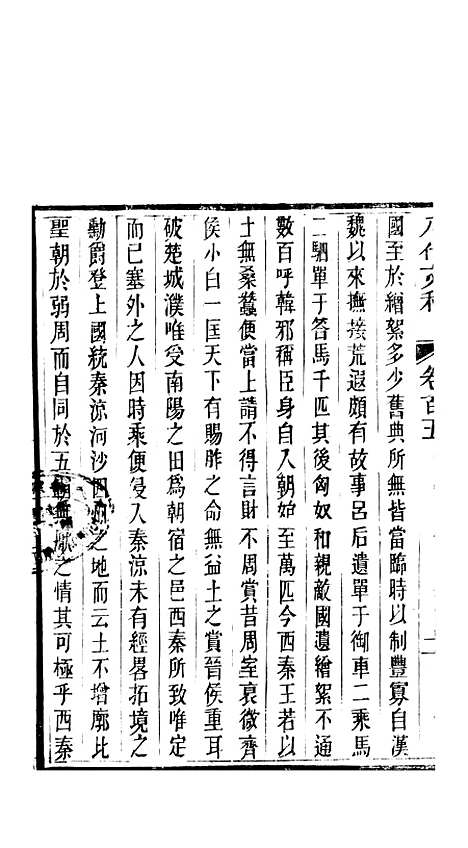 八代文粹 卷百五 二
國至於繒絮多少舊典所無皆當臨時以制豐寡自漢
魏以來撫接荒遐頗有故事呂后遺單于御車二乘馬
二駟單于答馬千匹其後匈奴和親敵國遺繒絮不通
數百呼韓邪稱臣身自入朝始至萬匹今西秦王若以
土無桑蠶便當上請不得言財不周賞昔周室衰微齊
侯小白一匡天下有賜胙之命無益土之賞晉侯重耳
破楚城濮唯受南陽之田爲朝宿之邑西秦所致唯定
而已塞外之人因時乘便侵入秦涼未有經畧拓境之
勳爵登上國統秦涼河沙四州之地而云土不增廓比
聖朝於弱周而自同於五霸無厭之情其可極乎西秦